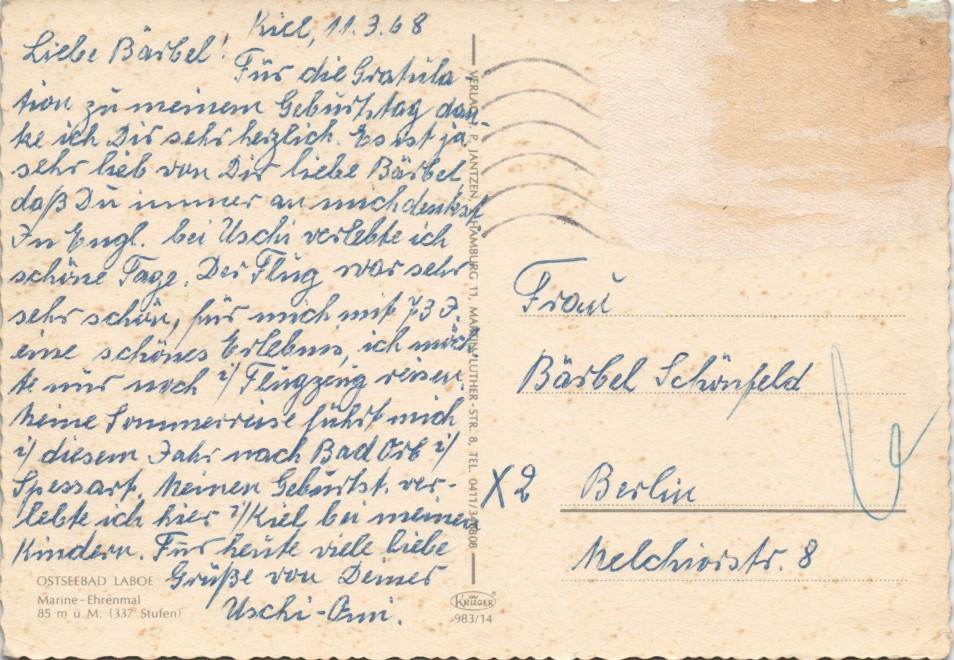 Kiel, 11.3.68
Liebe Bärbel!
Für die Gratula
tion zu meinem Geburtstag dan
ke ich Dir sehr herzlich. Es ist ja
sehr lieb von Dir liebe Bärbel
daß Du immer an mich denkst
In Engl. bei Uschi verlebte ich
schöne Tage. Der Flug war sehr
sehr schön, für mich mit 73 J.
eine schönes Erlebnis, ich möch
te nur noch i/ Flugzeug reisen.
Meine Sommerreise führt mich
i/ diesem Jahr nach Bad Orb i/
Spessart. Meinen Geburtst. ver-
lebte ich hier i/ Kiel bei meinen
Kindern. Für heute viele liebe
Grüße von Deiner
Uschi-Omi.
OSTSEEBAD LABOE
Marine-Ehrenmal
85 m ü M. (337 Stufen)
VERLAG P. JANTZEN, HAMBURG 11, MARTIN-LUTHER-STR. 8, TEL. 0411/
KRÜGER
983/14
Frau
Bärbel Schönfeld
X2 Berlin
Melchiorstr. 8